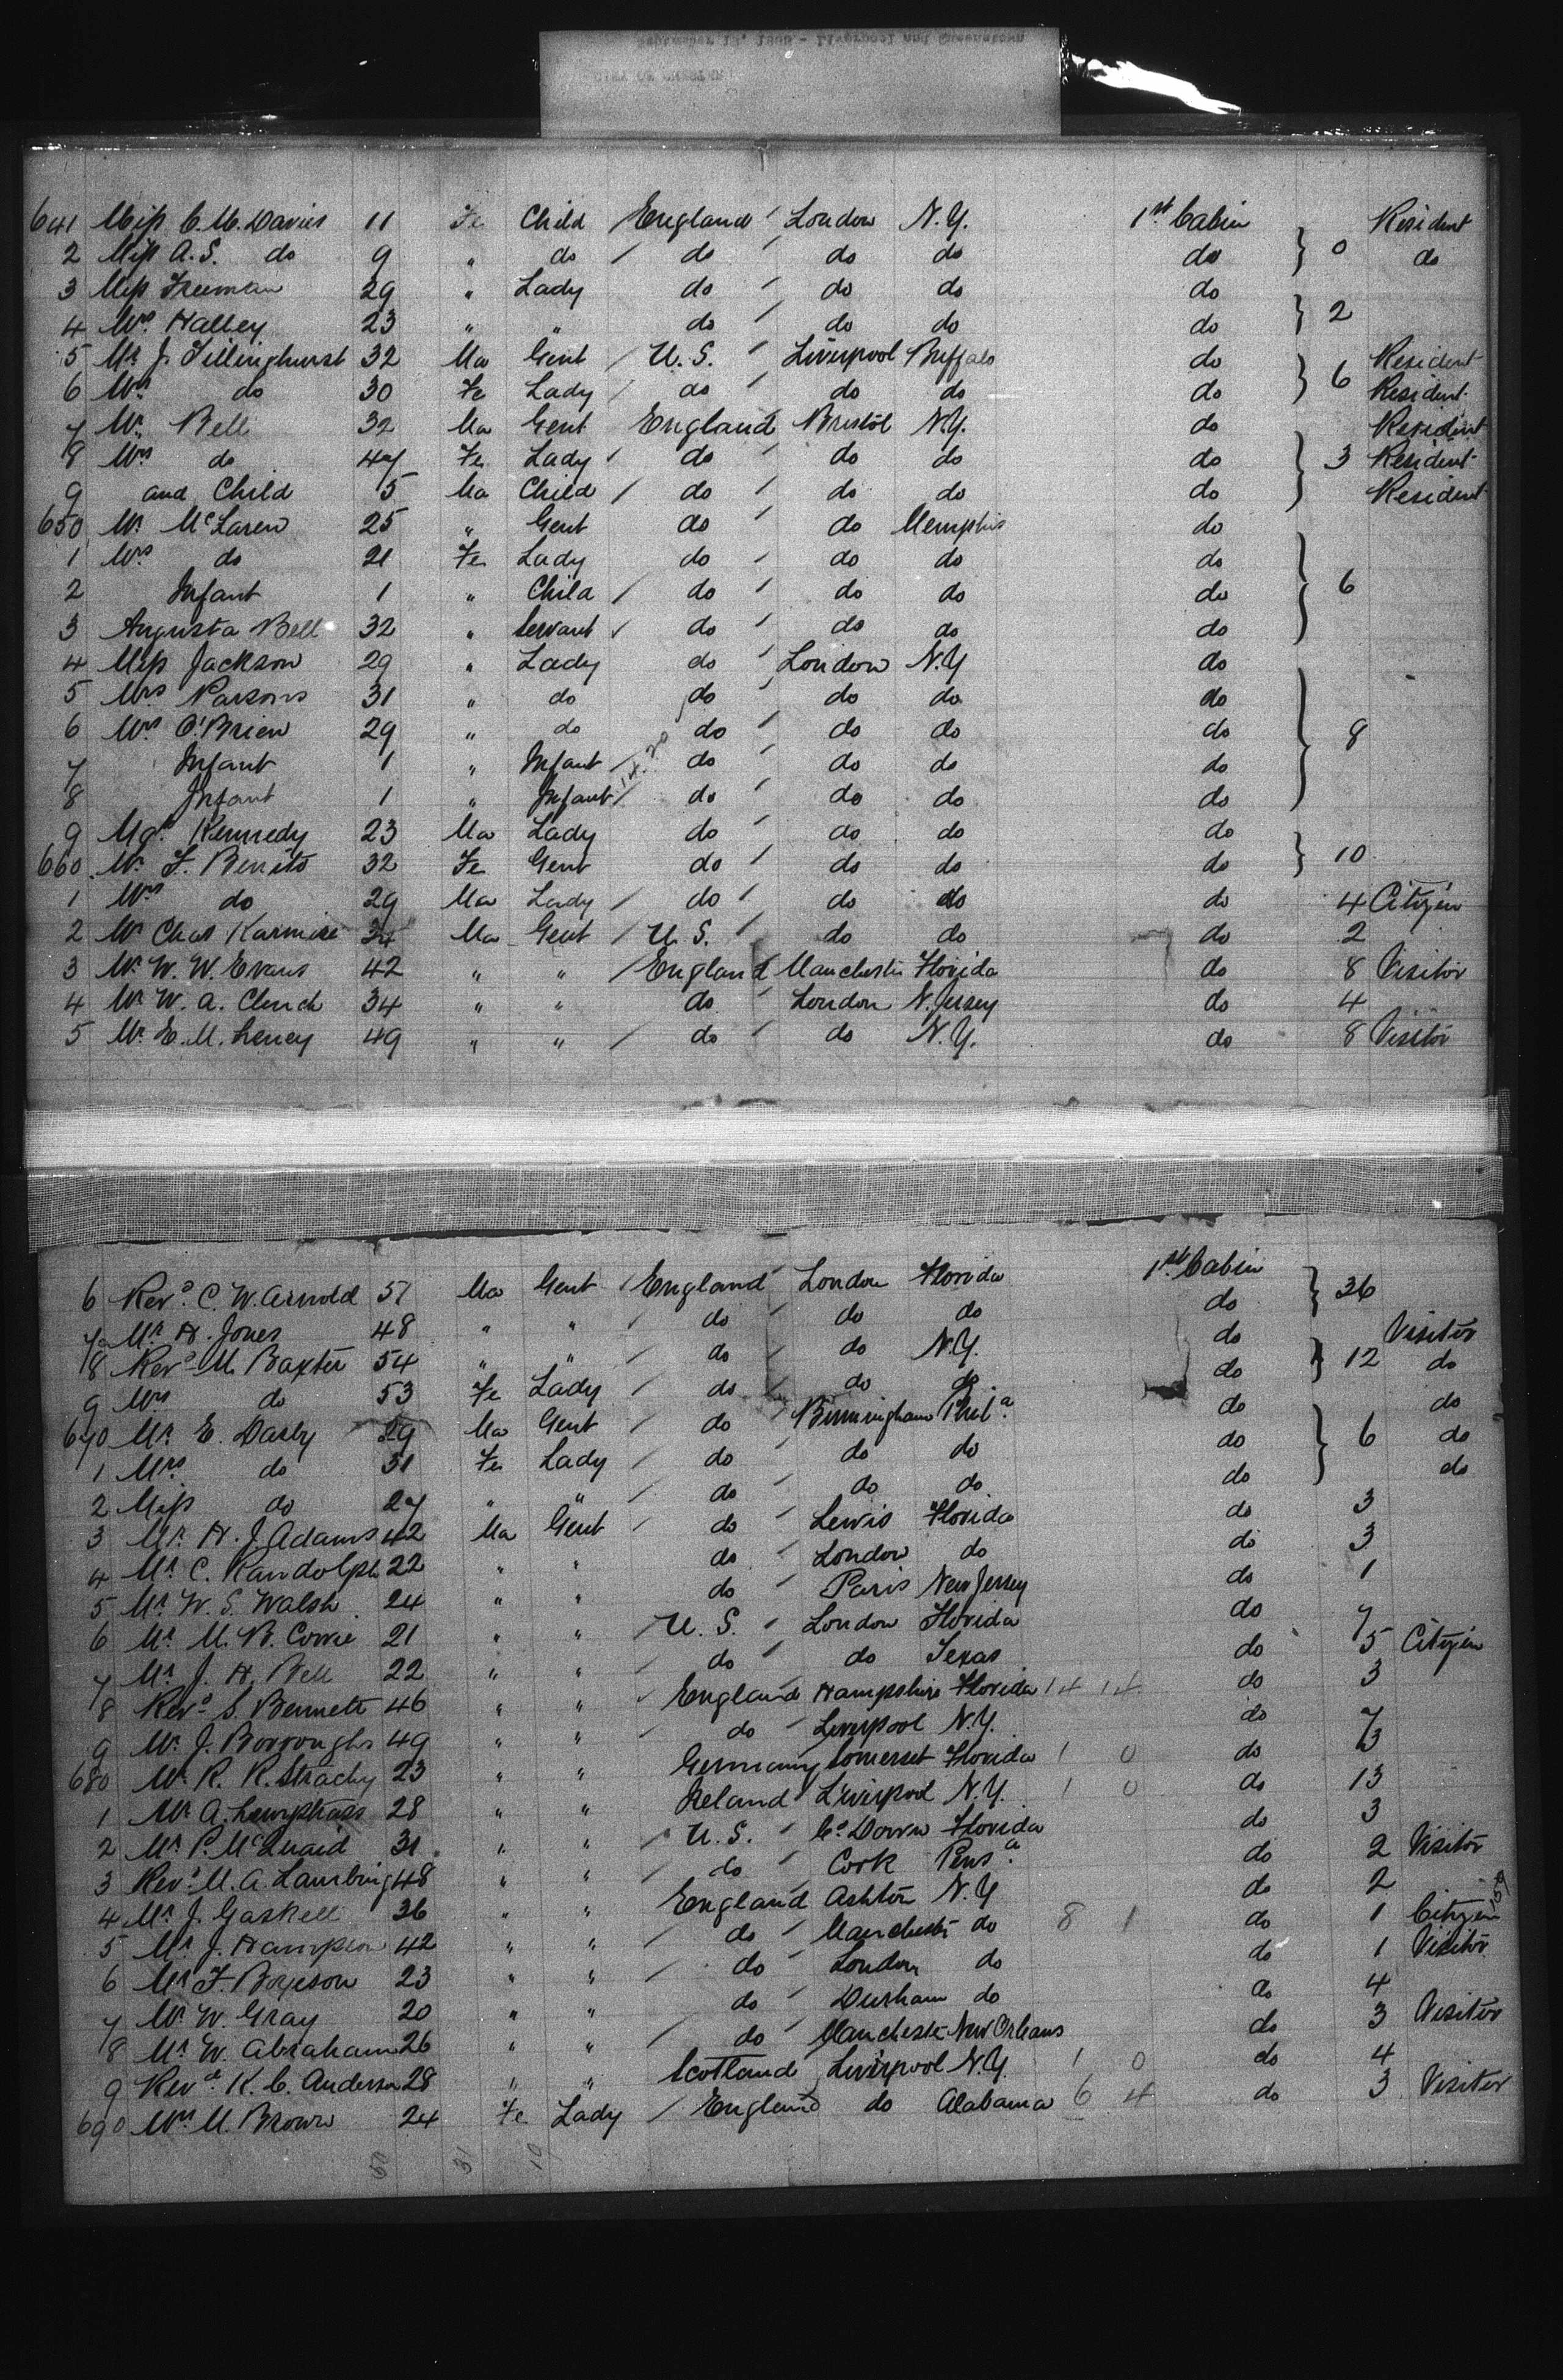 641 Miss C. M. Davies 11 Fe Child / England / London N.Y. 1st Cabin Resident
2 Miss A. S. do 9 " do / do / do do do } 0 do
3 Miss Freeman 29 " Lady do / do do do
4 Mrs Halley 23 " " do / do do do } 2
5 Mr J. Tillinghurst 32 Ma Gent / U.S. / Liverpool Buffalo do Resident
6 Mrs do 30 Fe Lady / do / do do do } 6 Resident
7 Mr Bell 32 Ma Gent England Bristol N.Y. do Resident
8 Mrs do 47 Fe Lady / do / do do do } 3 Resident
9 and Child 5 Ma Child / do / do do do Resident
650 Mr McLaren 25 " Gent do / do Memphis do
1 Mrs do 21 Fe Lady do / do do do
2 Infant 1 " Child / do / do do do } 6
3 Augusta Bell 32 " Servant / do / do do do
4 Miss Jackson 29 " Lady do / London N.Y do
5 Mrs Parsons 31 " do do / do do do
6 Mrs O'Brien 29 " do do / do do do } 8
7 Infant 1 " Infant / do / do do do
8 Infant 1 " Infant / do / do do do
9 Kennedy 23 Ma Lady do / do do do
660 Mr F. Benito 32 Fe Gent do / do do do } 10
1 Mrs do 29 Ma Lady / do / do do do 4 Citizen
2 Mr Chas 34 Ma Gent / U.S. / do do do 2
3 Mr W. W. Evans 42 " " / England / Manchester Florida do 8 Visitor
4 Mr W. A. Clench 34 " " do / London N. Jersey do 4
5 Mr E. M. 49 " " / do / do N.Y. do 8 Visitor
6 Revd C. W. Arnold 51 Ma Gent / England / London Florida 1st Cabin } 36
7 Mr H. Jones 48 " " / do / do do do
8 Revd M. Baxter 54 " " / do / do N.Y. do } 12 Visitor
9 Mrs do 53 Fe Lady / do / do do do do
670 Mr E. Darby 29 Ma Gent / do / Birmingham Phila do do
1 Mrs do 31 Fe Lady / do / do do do } 6 do
2 Miss do 27 " " / do / do do do do
3 Mr H. J. Adams 42 Ma Gent / do / Lewis Florida do 3
4 Mr C. Randolph 22 " " do / London do do 3
5 Mr W. S. Walsh 24 " " do / Paris New Jersey do 1
6 Mr M. B. 21 " " / U.S. / London Florida do 7
7 Mr J. H. Bell 22 " " / do / do Texas do 5 Citizen
8 Revd S. Bennett 46 " " / England Hampshire Florida 14 14 do 3
9 Mr J. Borroughs 49 " " / do / Liverpool N.Y. do 7
680 Mr R. R. Strachy 23 " " Germany Somerset Florida 1 0 do 3
1 Mr A. 28 " " Ireland / Liverpool N.Y. 1 0 do 13
2 Mr P. McQuaid 31 " " / U.S. / Co Down Florida do 3
3 Revd M. A. 48 " " / do / Cork Pensa do 2 Visitor
4 Mr J. Gaskell 36 " " England Ashton N.Y do 2
5 Mr J. Hampson 42 " " / do / Manchester do 8 1 do 1 Citizen
6 Mr F. 23 " " / do / London do do 1 Visitor
7 Mr W. Gray 20 " " do / Durham do do 4
8 Mr W. Abraham 26 " " / do / Manchester New Orleans do 3 Visitor
9 Revd K. C. Anderson 28 " " Scotland / Liverpool N.Y. 1 0 do 4
690 Mrs M. Brown 24 Fe Lady / England do Alabama 6 4 do 3 Visitor
31 10